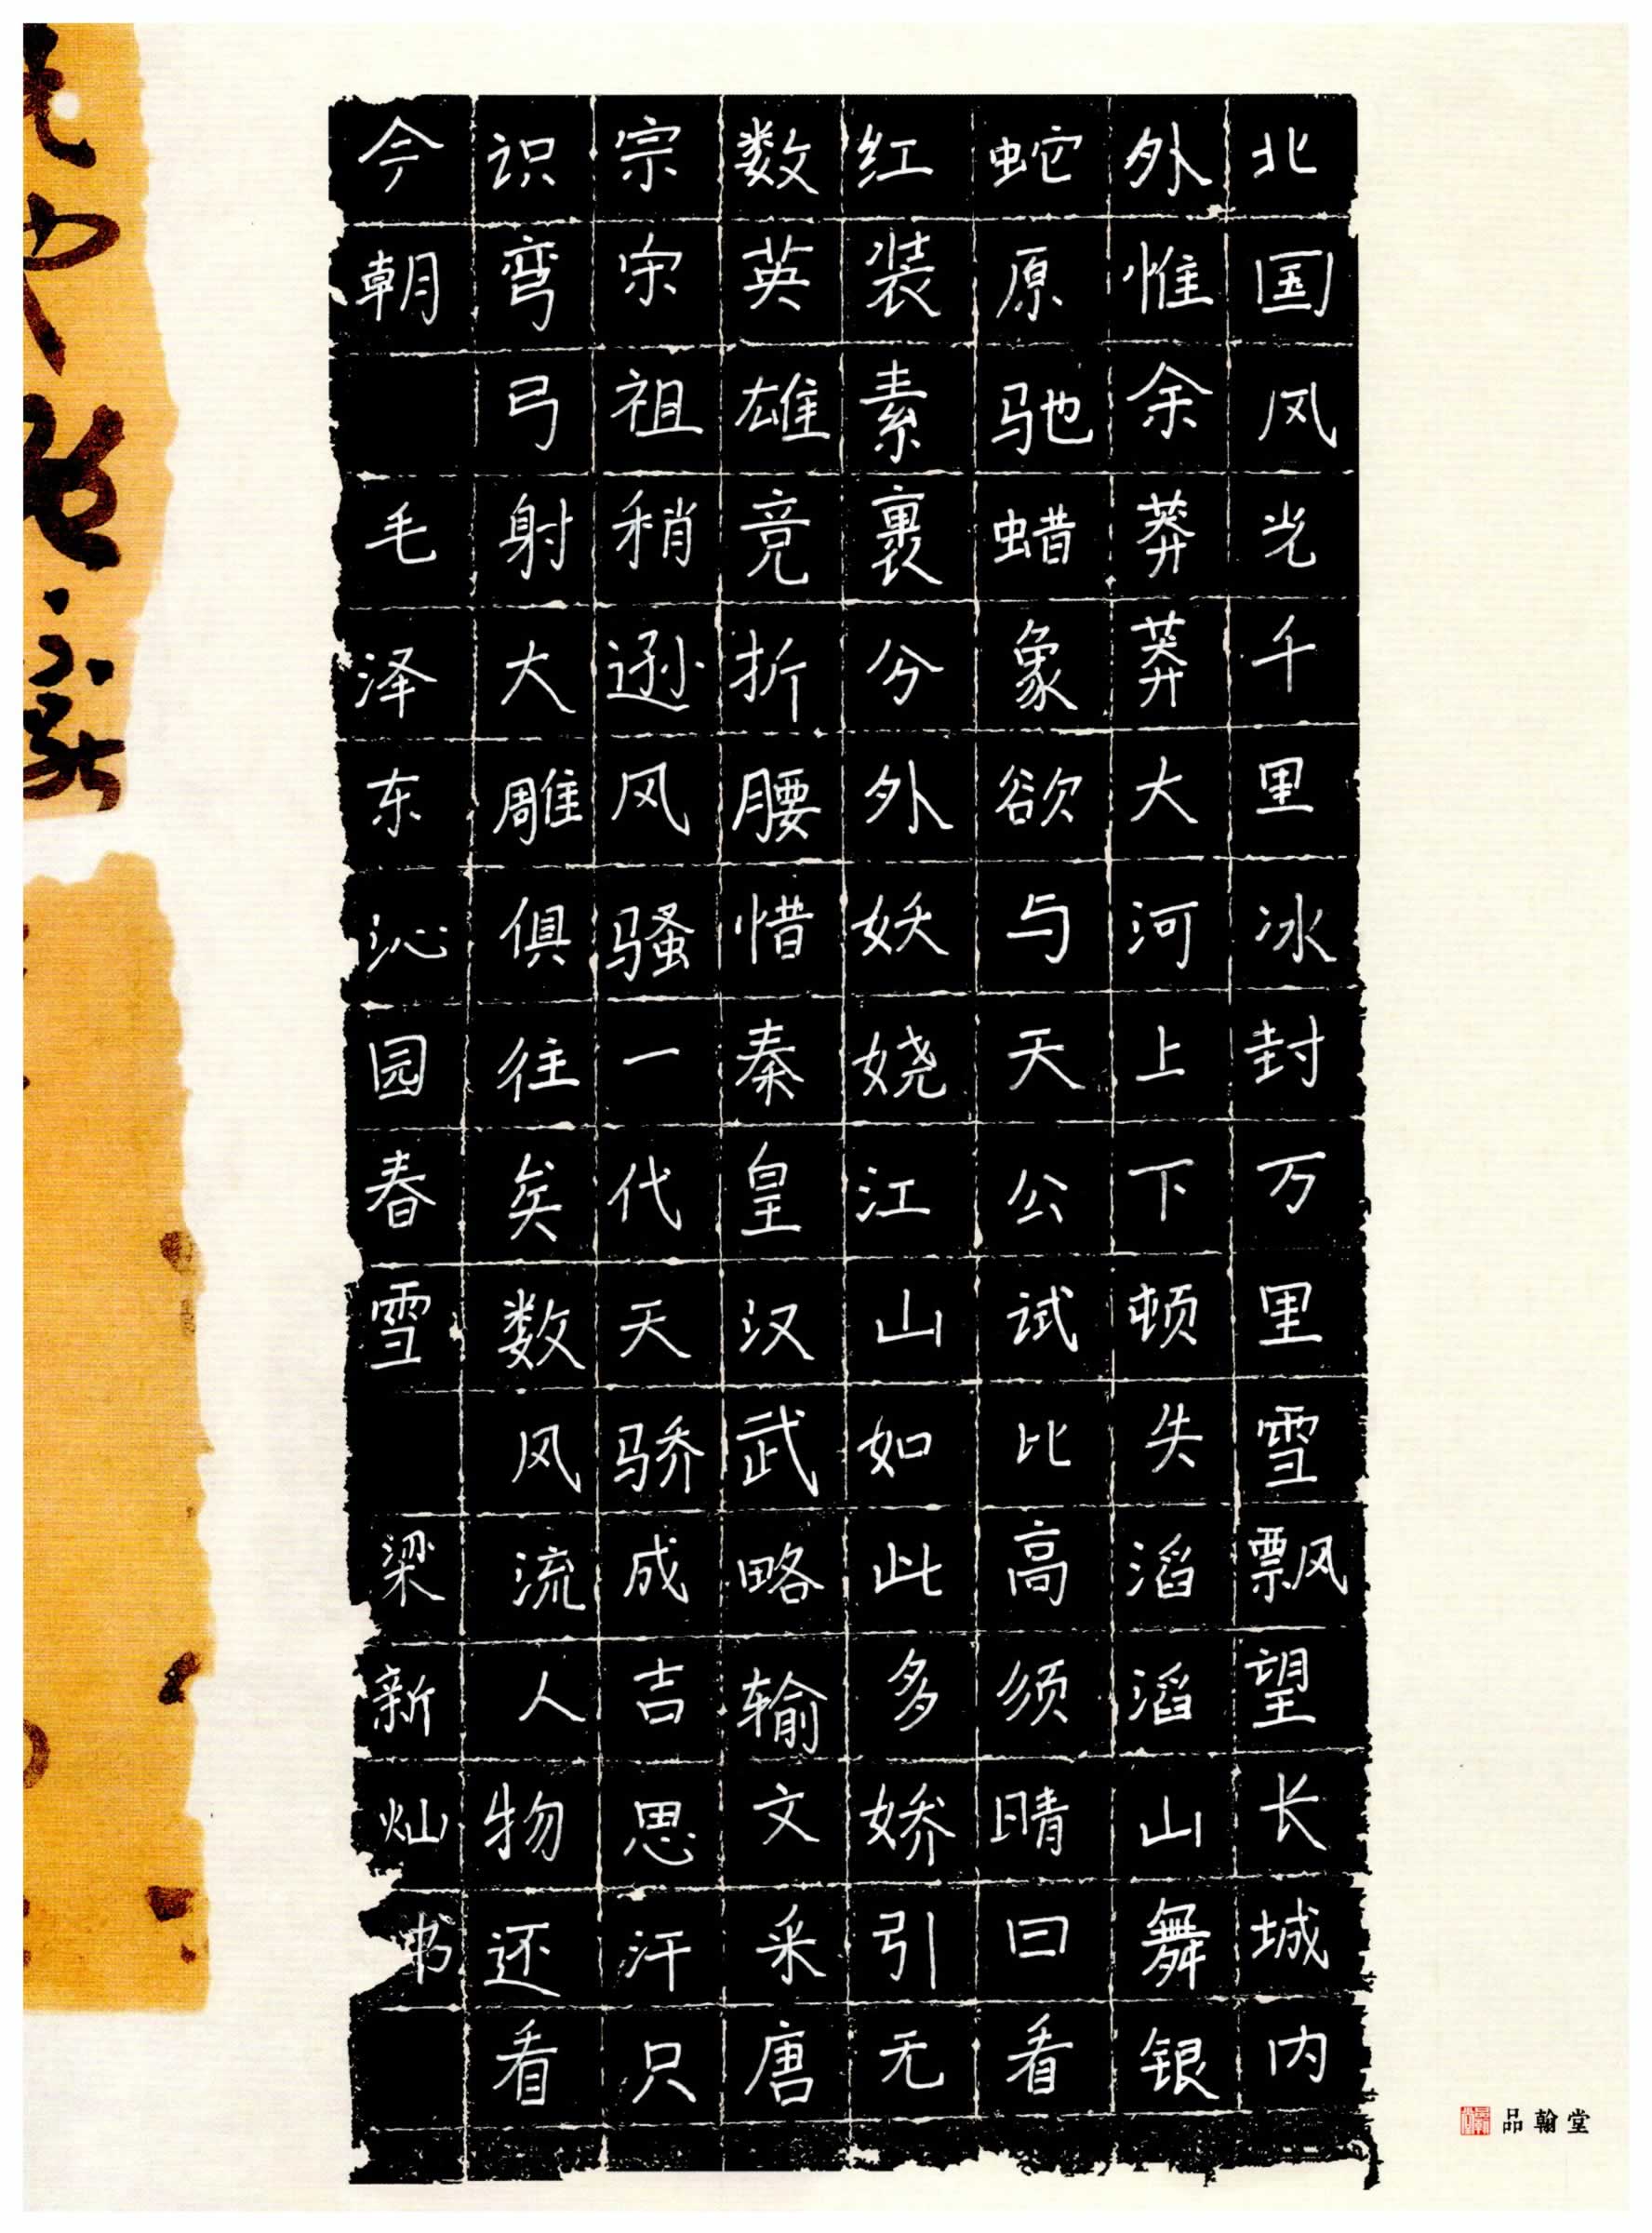 北国风光千里冰封万里雪飘望长城内
外惟余莽莽大河上下顿失滔滔山舞银
蛇原驰蜡象欲与天公试比高须晴日看
红装素裹分外妖娆江山如此多娇引无
数英雄竞折腰惜秦皇汉武略输文采唐
宗宋祖稍逊风骚一代天骄成吉思汗只
识弯弓射大雕俱往矣数风流人物还看
今朝 毛泽东沁园春雪 梁新灿书
品翰堂